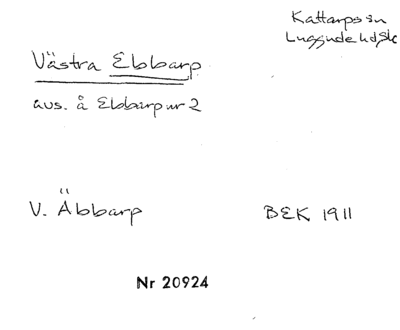 Kattarps sn
Luggude hd Sk
Västra Ebbarp
avs. å Ebbarp nr 2
V. Äbbarp
BEK 1911
Nr 20924